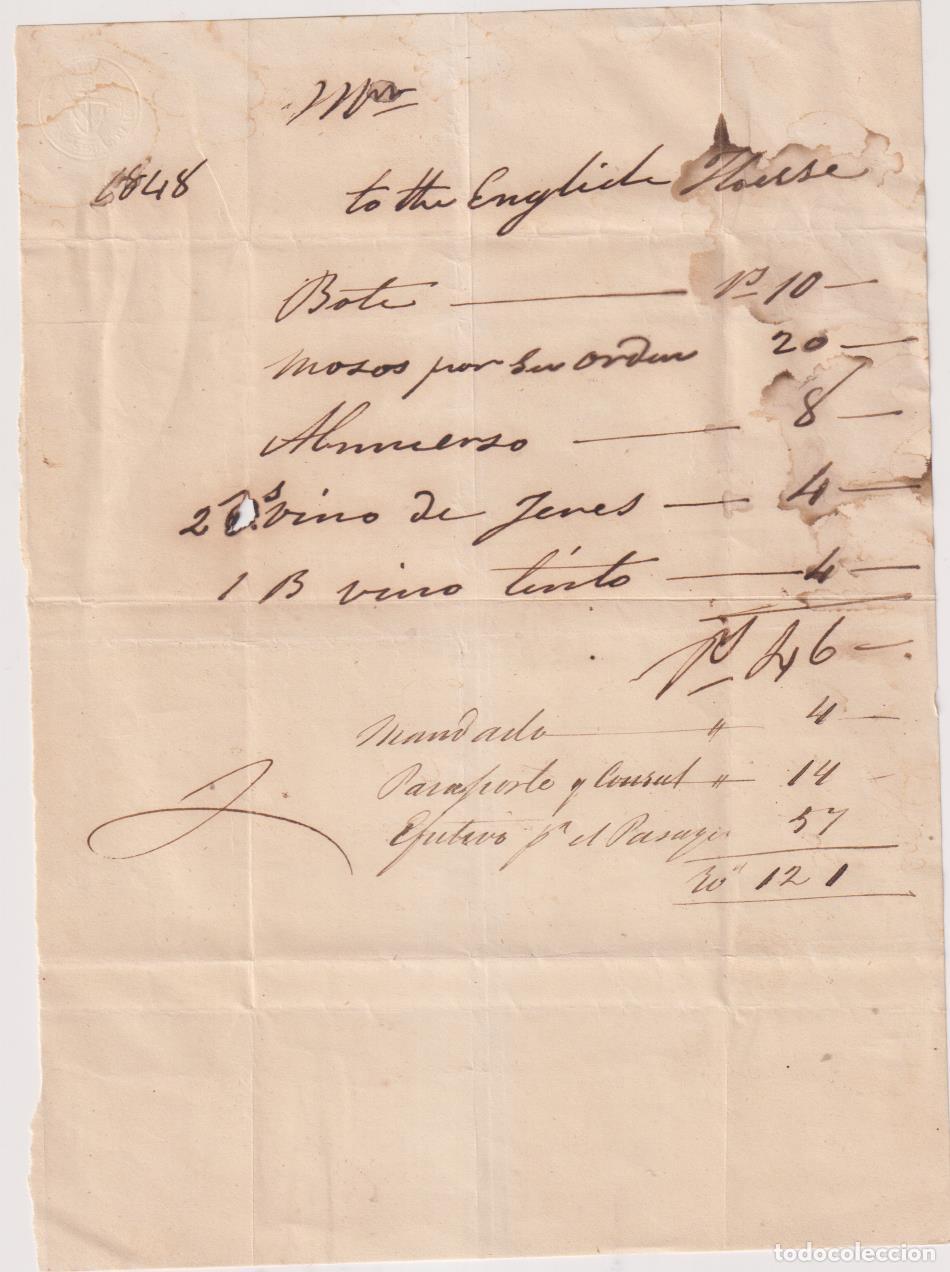 Mr
1848 to the English House
Bote — Ps 10 —
Mosos por su orden 20 —
Almuerso — 8 —
2 vino de Jeres — 4 —
1 B vino tinto — 4 —
Ps 46 —
Mandado — " 4 —
Pasaporte y Consul " 14 —
Efetivo pa el Pasage 57
121
todocoleccion